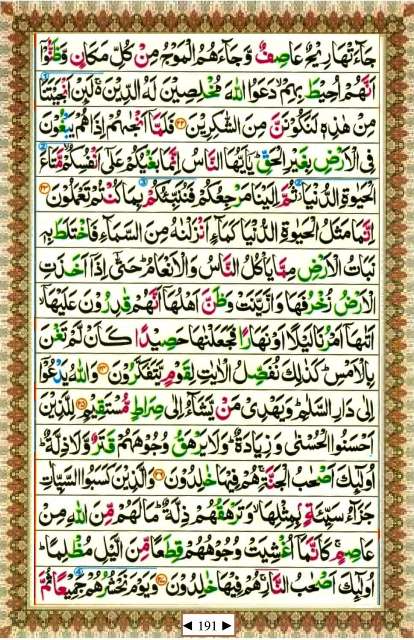 جَآءَتْهَا رِيْحٌ عَاصِفٌ وَّجَآءَهُمُ الْمَوْجُ مِنْ كُلِّ مَكَانٍ وَّظَنُّوْۤا
اَنَّهُمْ اُحِيْطَ بِهِمْ ۙ دَعَوُا اللّٰهَ مُخْلِصِيْنَ لَهُ الدِّيْنَ ۚ لَئِنْ اَنْجَيْتَنَا
مِنْ هٰذِهٖ لَنَكُوْنَنَّ مِنَ الشّٰكِرِيْنَ ۝۲۲ فَلَمَّاۤ اَنْجٰىهُمْ اِذَا هُمْ يَبْغُوْنَ
فِى الْاَرْضِ بِغَيْرِ الْحَقِّ ؕ يٰۤاَيُّهَا النَّاسُ اِنَّمَا بَغْيُكُمْ عَلٰۤى اَنْفُسِكُمْ ۙ مَّتَاعَ
الْحَيٰوةِ الدُّنْيَا ؗ ثُمَّ اِلَيْنَا مَرْجِعُكُمْ فَنُنَبِّئُكُمْ بِمَا كُنْتُمْ تَعْمَلُوْنَ ۝۲۳
اِنَّمَا مَثَلُ الْحَيٰوةِ الدُّنْيَا كَمَآءٍ اَنْزَلْنٰهُ مِنَ السَّمَآءِ فَاخْتَلَطَ بِهٖ
نَبَاتُ الْاَرْضِ مِمَّا يَاْكُلُ النَّاسُ وَالْاَنْعَامُ ؕ حَتّٰۤى اِذَاۤ اَخَذَتِ
الْاَرْضُ زُخْرُفَهَا وَازَّيَّنَتْ وَظَنَّ اَهْلُهَاۤ اَنَّهُمْ قٰدِرُوْنَ عَلَيْهَاۤ ۙ
اَتٰىهَاۤ اَمْرُنَا لَيْلًا اَوْ نَهَارًا فَجَعَلْنٰهَا حَصِيْدًا كَاَنْ لَّمْ تَغْنَ
بِالْاَمْسِ ؕ كَذٰلِكَ نُفَصِّلُ الْاٰيٰتِ لِقَوْمٍ يَّتَفَكَّرُوْنَ ۝۲۴ وَاللّٰهُ يَدْعُوْۤا
اِلٰى دَارِ السَّلٰمِ ؕ وَيَهْدِىْ مَنْ يَّشَآءُ اِلٰى صِرَاطٍ مُّسْتَقِيْمٍ ۝۲۵ لِلَّذِيْنَ
اَحْسَنُوا الْحُسْنٰى وَزِيَادَةٌ ؕ وَلَا يَرْهَقُ وُجُوْهَهُمْ قَتَرٌ وَّلَا ذِلَّةٌ ؕ
اُولٰٓئِكَ اَصْحٰبُ الْجَنَّةِ ۚ هُمْ فِيْهَا خٰلِدُوْنَ ۝۲۶ وَالَّذِيْنَ كَسَبُوا السَّيِّاٰتِ
جَزَآءُ سَيِّئَةٍۭ بِمِثْلِهَا ۙ وَتَرْهَقُهُمْ ذِلَّةٌ ؕ مَا لَهُمْ مِّنَ اللّٰهِ مِنْ
عَاصِمٍ ۚ كَاَنَّمَاۤ اُغْشِيَتْ وُجُوْهُهُمْ قِطَعًا مِّنَ الَّيْلِ مُظْلِمًا ؕ
اُولٰٓئِكَ اَصْحٰبُ النَّارِ ۚ هُمْ فِيْهَا خٰلِدُوْنَ ۝۲۷ وَيَوْمَ نَحْشُرُهُمْ جَمِيْعًا ثُمَّ
191